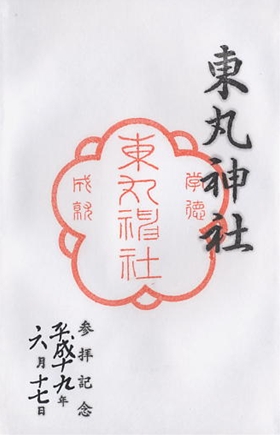 東丸神社
学徳
東丸神社
成就
参拝記念
平成十九年
六月十七日